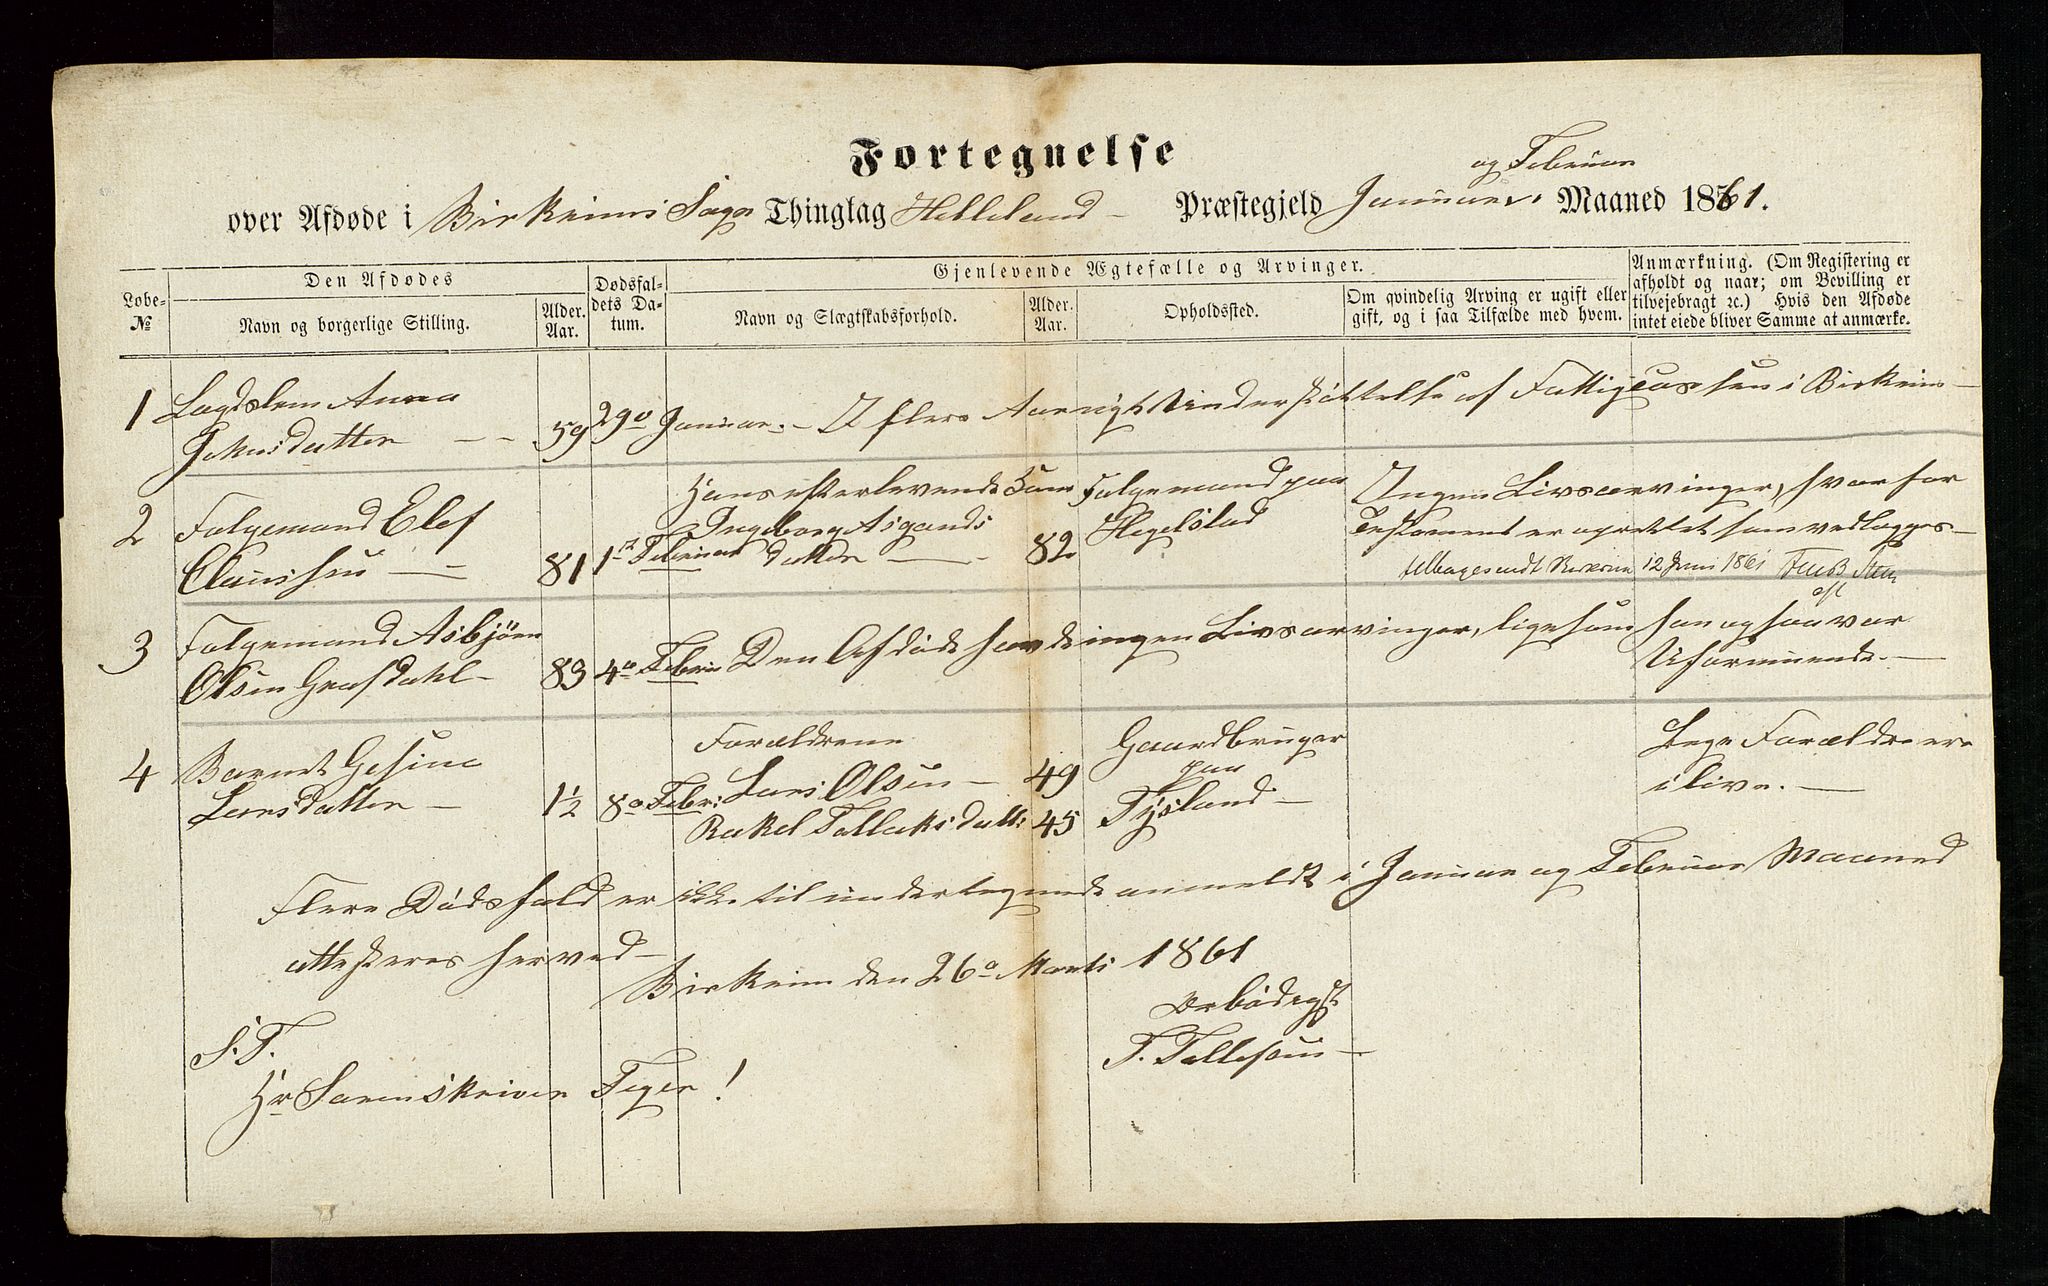 Fortegnelse
og Februar
over Afdøde i Birkrims Sogn Thinglag Helleland Præstegjeld Januar Maaned 1861.
Løbe-№
Den Afdødes
Navn og borgerlige Stilling.
Alder. Aar.
Dødsfaldets Datum.
Gjenlevende Ægtefælle og Arvinger.
Navn og Slægtskabsforhold.
Alder. Aar.
Opholdssted.
Om qvindelig Arving er ugift eller
gift, og i saa Tilfælde med hvem.
Anmærkning. (Om Registering er
afholdt og naar; om Bevilling er
tilvejebragt ꝛc.) Hvis den Afdøde
intet eiede bliver Samme at anmærke.
1 Lægdslem Anna
Johnsdatter — 59 29o Januar. – I flere Aar nydt Understøttelse af Fattigcassen i Birkrim –
2 Folgemand Elef
Claussen — 81 1ste Februar
Hans efterlevende Kone
Ingeborg Asgauds
datter — 82
Folgemand paa
Hegelstad
Ingen Livsarvinger, hvorfor
Testament er oprettet som vedlegges –
tilbagesendt 12 Juni 1861
3 Folgemand Asbjörn
Olsen Grøfsdahl – 83 4o Febru Den Afdöde havde ingen Livsarvinger, ligesom han ogsaa var
Uformuende. —
4 Barnet Gesine
Larsdatter – 1½ 8o Febr:
Forældrene
Lars Olsen – 49
Rakel Tollaksdatt: 45
Gaardbruger
paa
Tÿsland –
Begge Forældre ere
i live. —
Flere Dödsfald er ikke til undertegnede anmeldt i Januar og Februar Maaned
attesteres herved –
Birkrim den 26o Marts 1861
Ærbödigst
T. Tollefsen –
S. T.
Hr Sorenskriver Feyer!